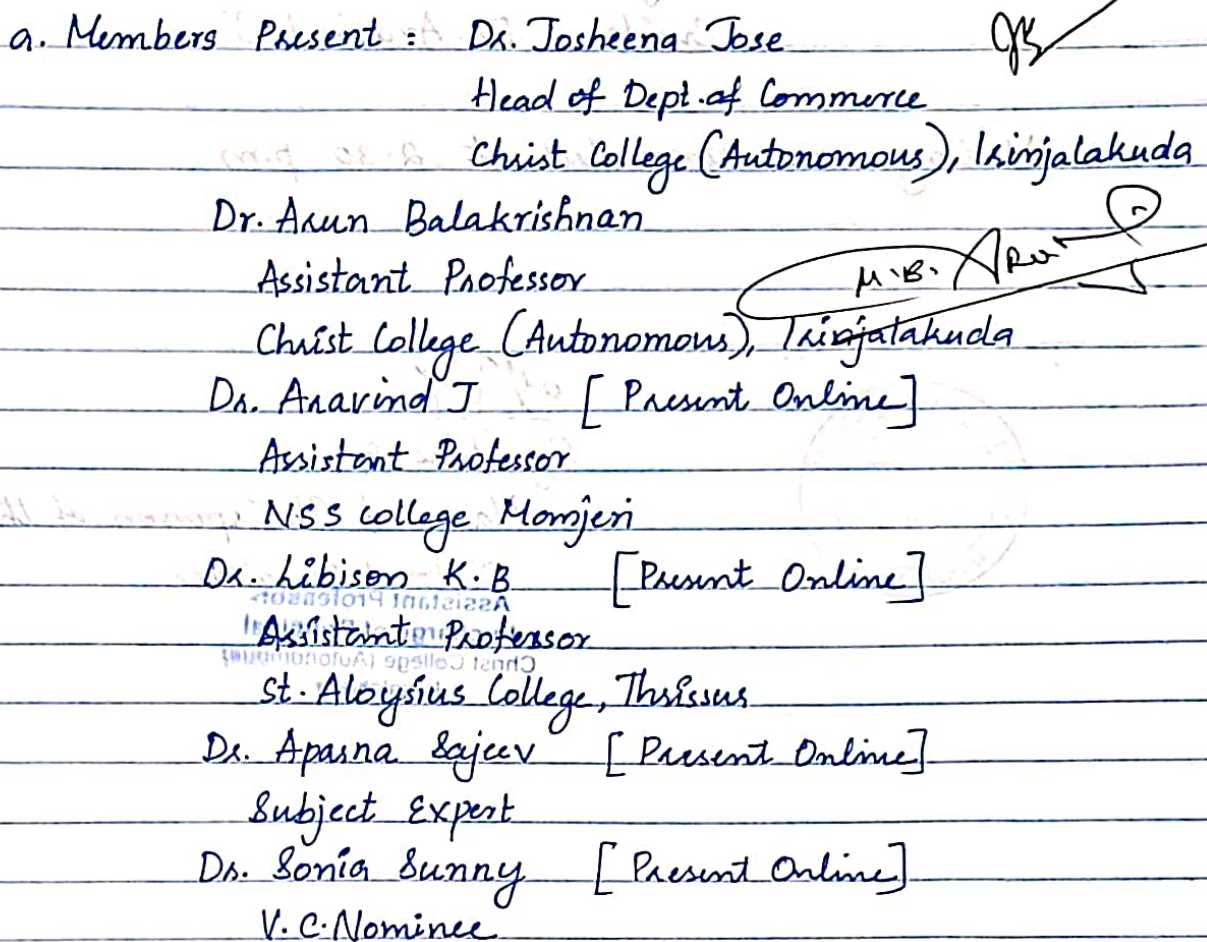 a. Members Present : Dr. Josheena Jose
Head of Dept. of Commerce
Christ College (Autonomous), Irinjalakuda
Dr. Arun Balakrishnan
Assistant Professor
M.B. Arun
Christ College (Autonomous), Irinjalakuda
Dr. Aravind J [Present Online]
Assistant Professor
NSS College Manjeri
Dr. Libison K.B [Present Online]
Assistant Professor
St. Aloysius College, Thrissur
Dr. Aparna Sajeev [Present Online]
Subject Expert
Dr. Sonia Sunny [Present Online]
V.C. Nominee